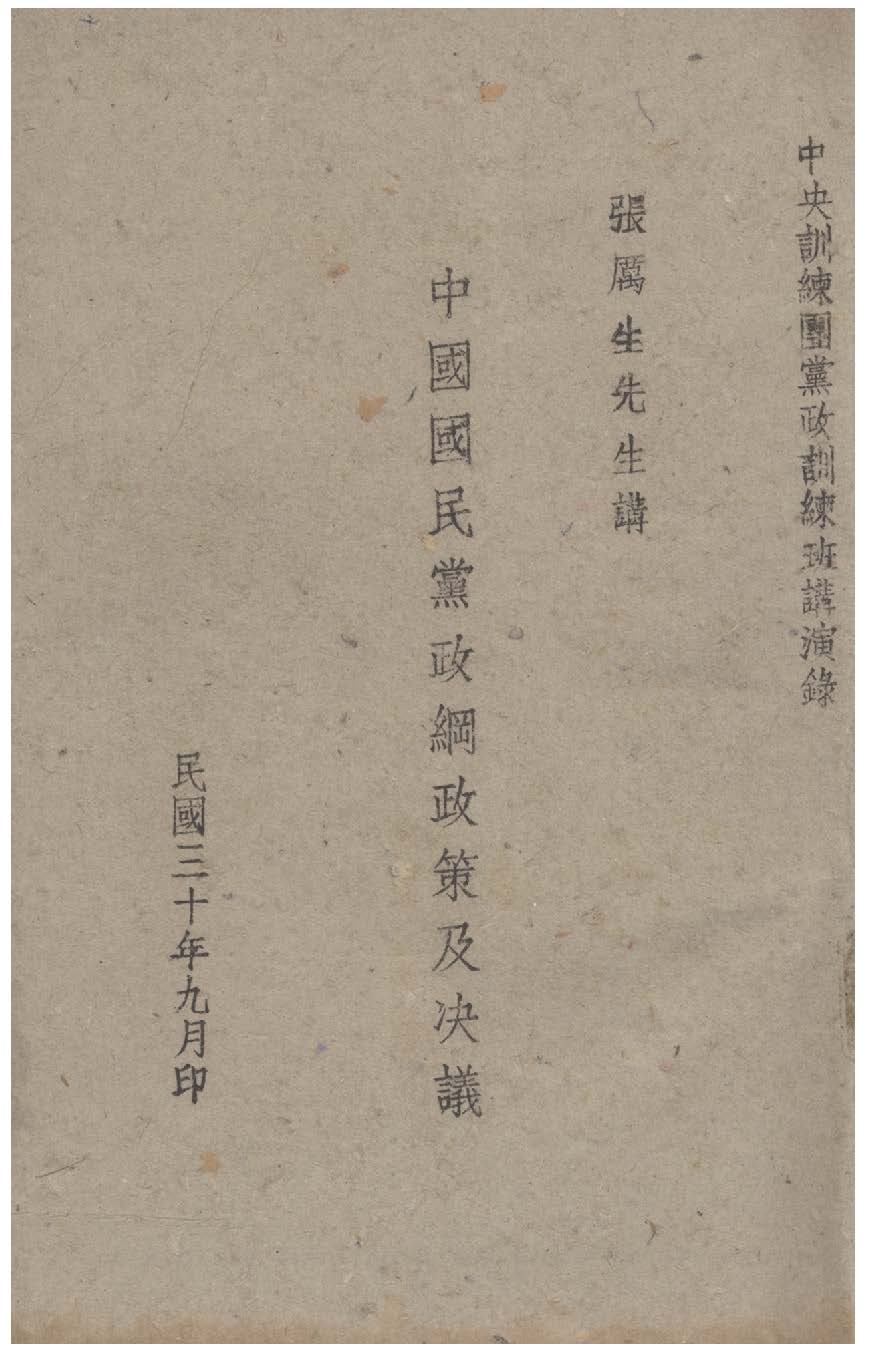 中央訓練團黨政訓練班講演錄
張厲生先生講
中國國民黨政綱政策及决議
民國三十年九月印